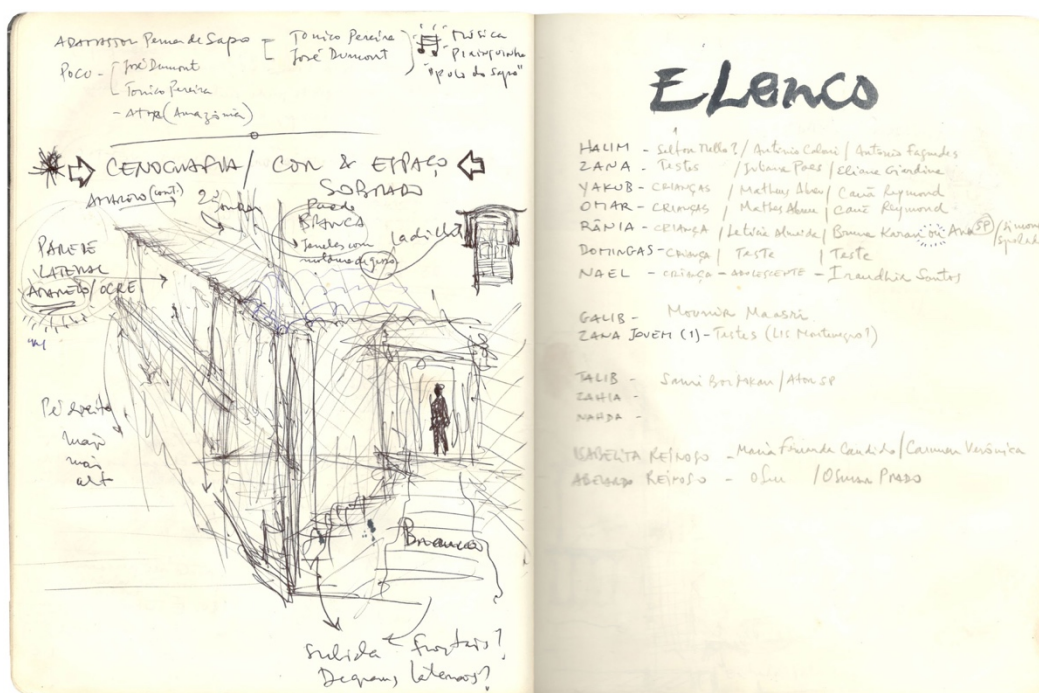 ADAMASTOR Perna de Sapo - Tonico Pereira
José Dumont
Música
Pixinguinha
"o pulo do sapo"
POCU - José Dumont
Tonico Pereira
- ATOR (Amazônia)
CENOGRAFIA / COR & ESPAÇO
SOBRADO
AMARELO (cont.)
Parede
BRANCA
Janelas com
moldura de gesso
ladilha
PAREDE
LATERAL
AMARELO/OCRE
Pé direito
mais
mais
alto
Barranco
subida frontais?
Degraus laterais?
ELENCO
HALIM - Selton Mello? / Antônio Calloni / Antonio Fagundes
ZANA - Testes / Juliana Paes / Eliane Giardini
YAKUB - CRIANÇAS / Matheus Abreu / Cauã Reymond
OMAR - CRIANÇAS / Matheus Abreu / Cauã Reymond
RÂNIA - CRIANÇA / Letícia Almeida / Bruna Ana SP / Simone
DOMINGAS - CRIANÇA / Teste / Teste
NAEL - CRIANÇA - ADOLESCENTE - Irandhir Santos
GALIB - Mounir Maasri
ZANA JOVEM (1) - Testes
TALIB - Sami Bordokan / Ator SP
ZAHIA -
NAHDA -
ISABELITA REINOSO - Maria Fernanda Candido / Carmem Verônica
ABELARDO REINOSO - / Osmar Prado